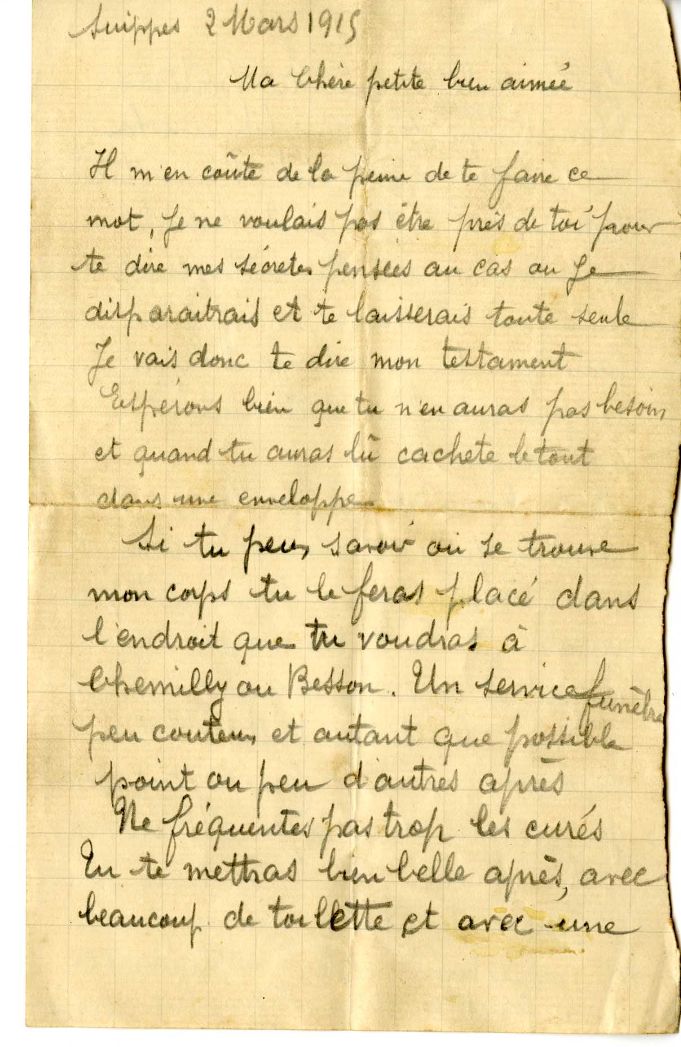 Suippes 2 Mars 1915
Ma Chère petite bien aimée
Il m'en coûte de la peine de te faire ce
mot, Je ne voulais pas être près de toi pour
te dire mes sécretes pensées au cas ou Je
disparaitrais et te laisserais toute seule
Je vais donc te dire mon testament
Espérons bien que tu n'en auras pas besoin
et quand tu auras lû cachete le tout
dans une enveloppe
Si tu peus savoir ou se trouve
mon corps tu le feras placé dans
l'endroit que tu voudras à
Chemilly ou Besson. Un service funèbre
peu couteus et autant que possible
point ou peu d'autres après
Ne fréquentes pas trop les curés
Tu te mettras bien belle après, avec
beaucoup de toilette et avec une